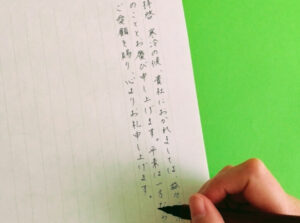 拝啓 寒冷の候、貴社におかれましては 益々
のこととお慶び申し上げます。平素は
ご愛顧を賜り、心よりお礼申し上げます。